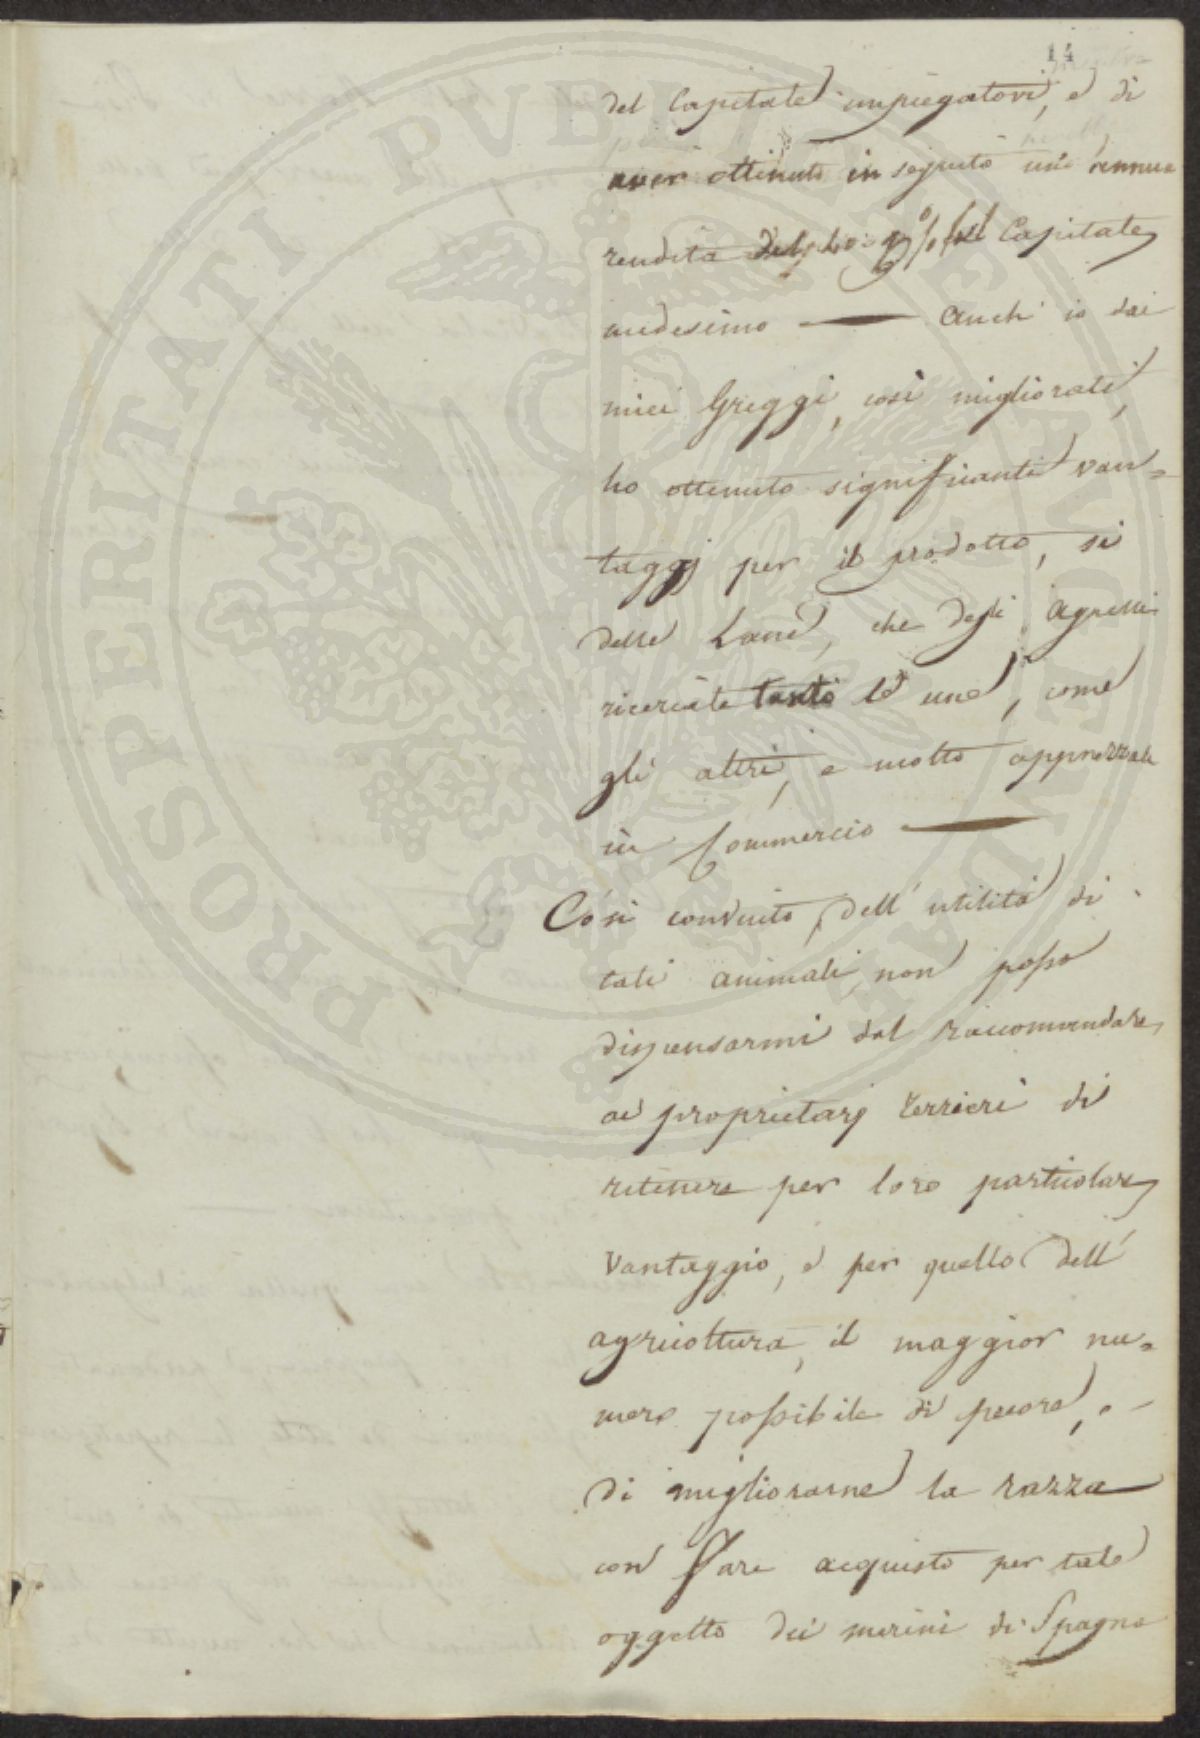 14
del Capitale impiegatovi, e di
aver ottenuto in seguito una annua
rendita del 9% sul Capitale
medesimo — Anch' io dai
miei Greggi, così migliorati,
ho ottenuto significanti van=
taggj per il prodotto, sì
delle Lane, che degli agnelli
ricercate tanto le une, come
gli altri, e molto apprezzati
in Commercio —
Così convinto dell' utilità di
tali animali, non posso
dispensarmi dal raccomandare
ai proprietarj terrieri di
ritenere per loro particolare
vantaggio, e per quello dell'
agricoltura, il maggior nu=
mero possibile di pecore, e
di migliorarne la razza
con fare acquisto per tale
oggetto dei merini di Spagna
PROSPERITATI PVBLICAE AVGENDAE